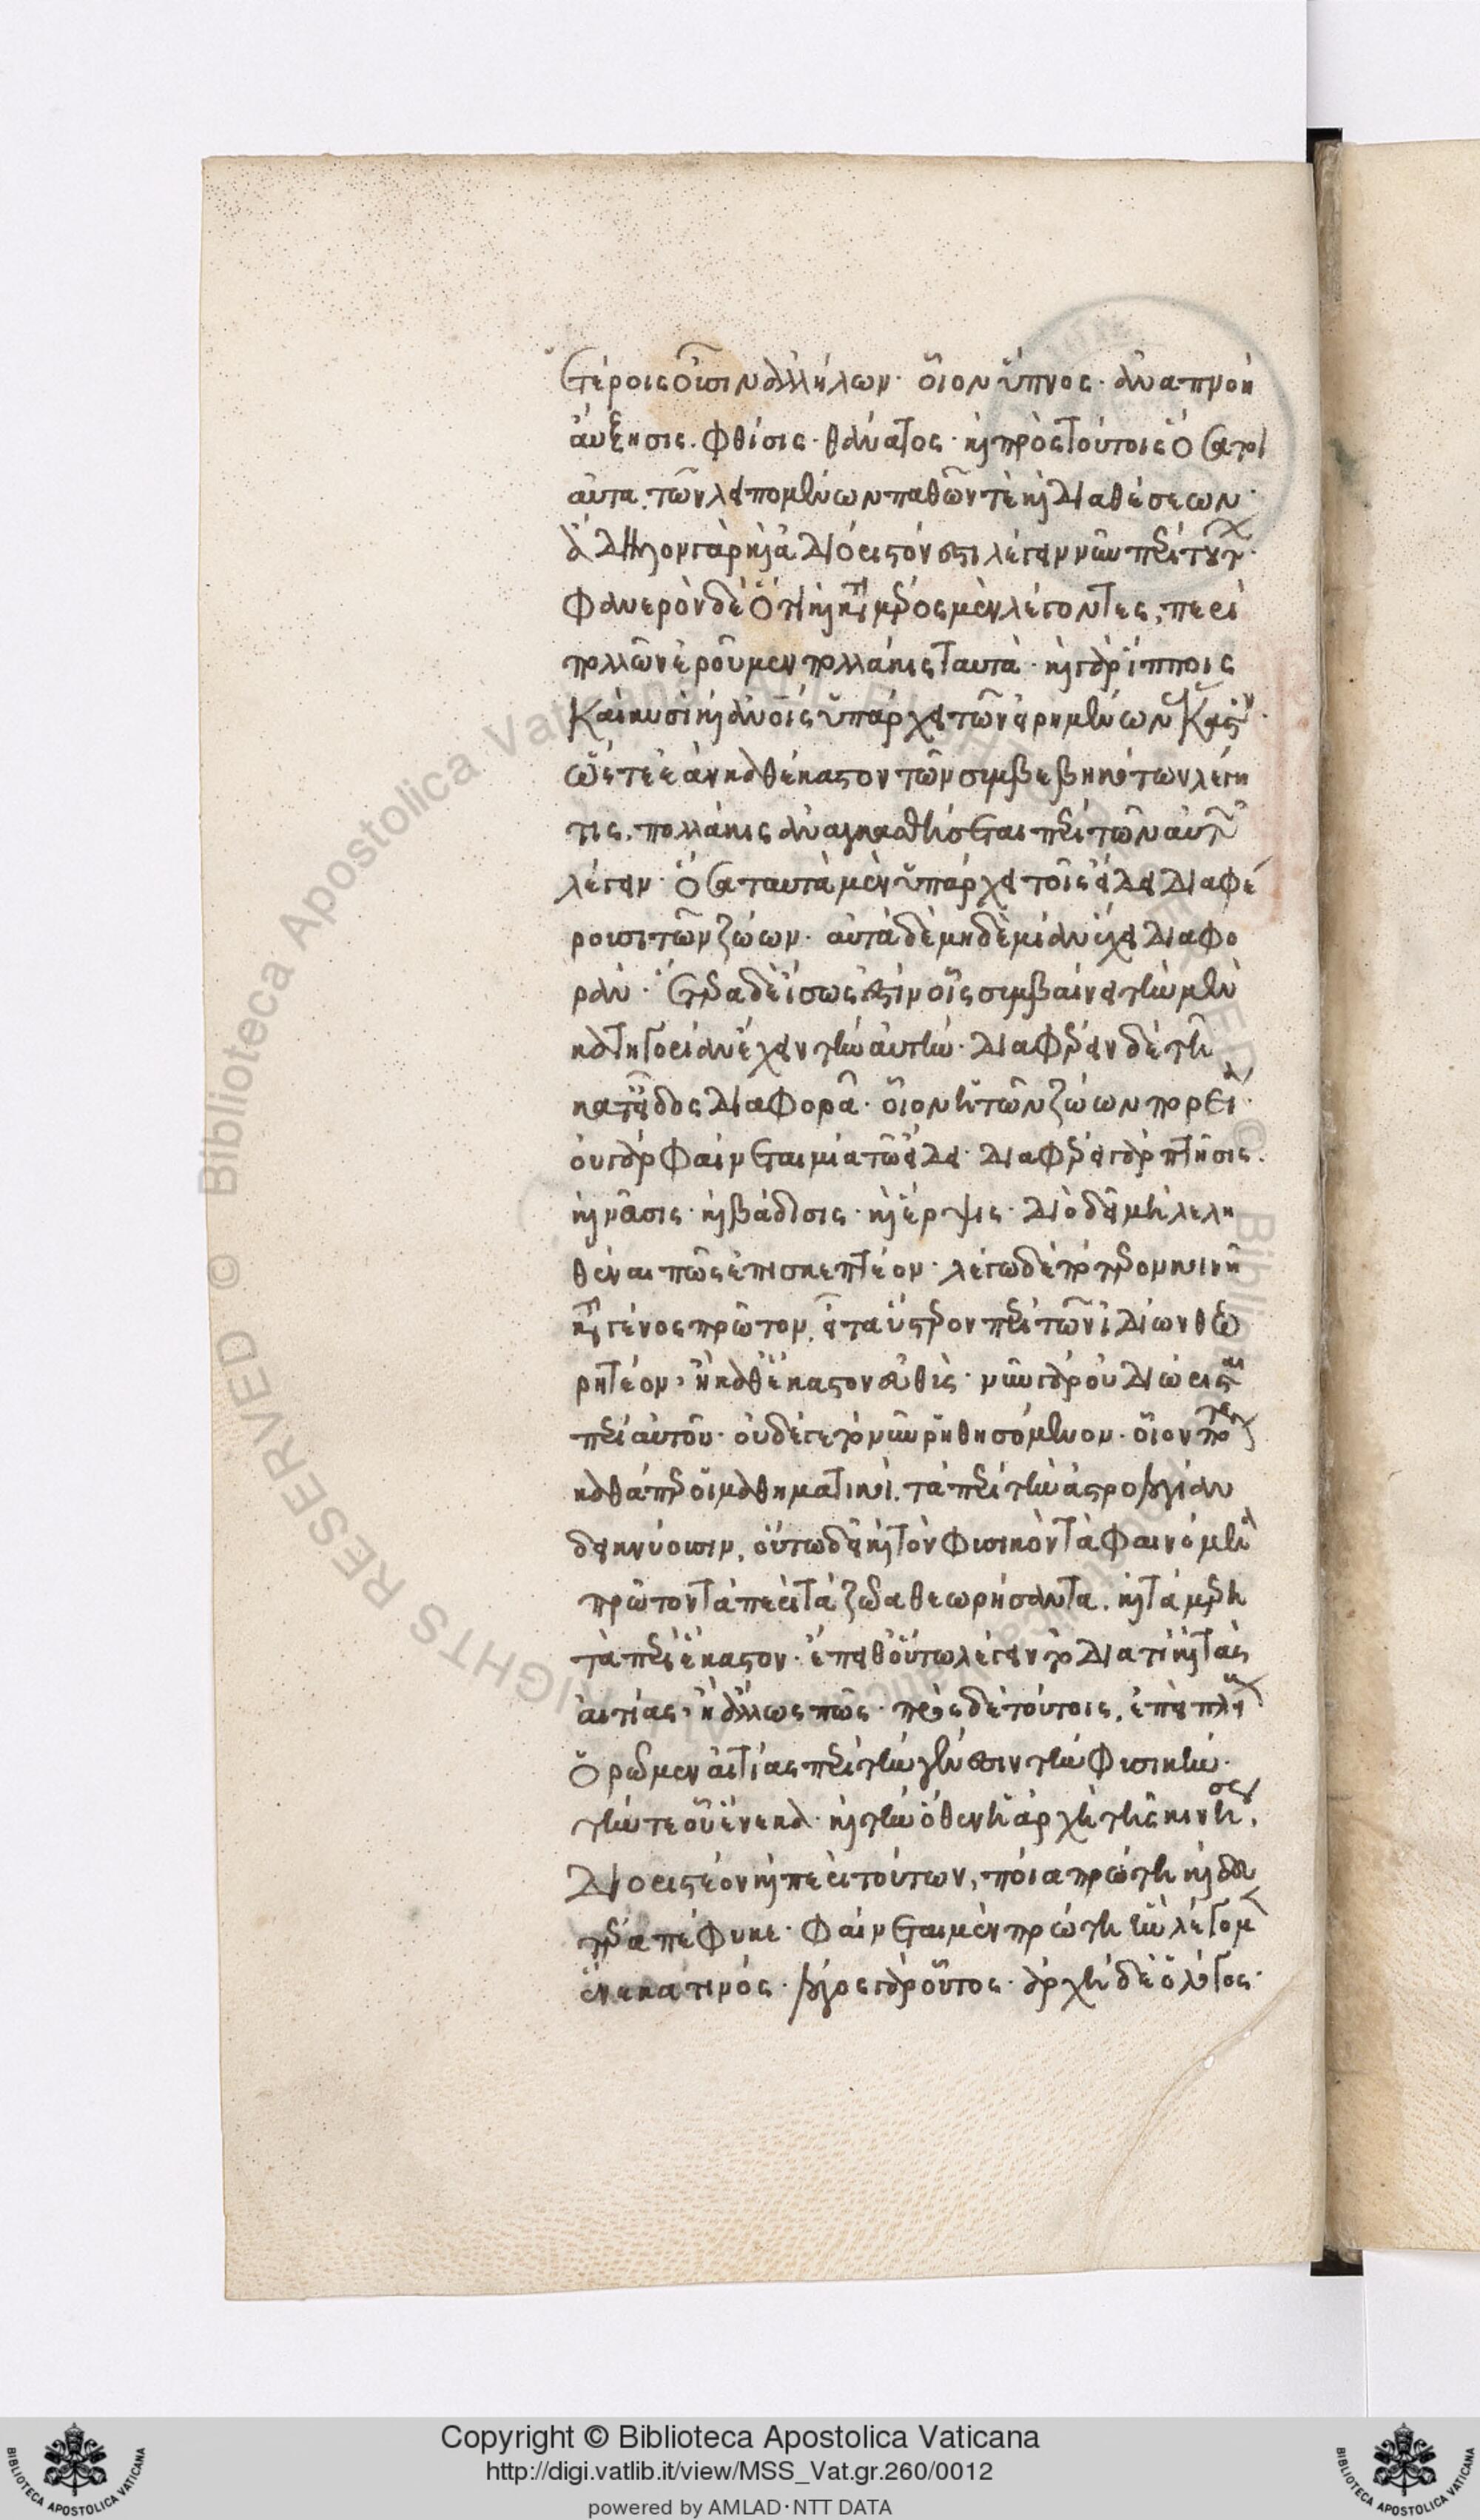 ἑτέροις οὖσιν ἀλλήλων· οἷον ὕπνος· ἀναπνοὴ
αὔξησις· φθίσις· θάνατος· καὶ πρὸς τούτοις ὅσα τοι
αῦτα τῶν λειπομένων παθῶν τὲ καὶ διαθέσεων·
ἄδηλον γὰρ καὶ ἀδιόριστόν ἐστι λέγειν νῦν περὶ τούτων·
φανερὸν δὲ ὅτι καὶ κατὰ μέρος μὲν λέγοντες, περὶ
πολλῶν ἐροῦμεν πολλάκις ταυτά· καὶ γὰρ ἵπποις
καὶ κυσὶ καὶ ἀνοις ὑπάρχει τῶν εἰρημένων ἕκαστον·
ὥστε ἐὰν καθέκαστον τῶν συμβεβηκότων λέγη
τις, πολλάκις ἀναγκασθήσεται περὶ τῶν αὐτῶν
λέγειν· ὅσα ταυτὰ μὲν ὑπάρχει τοῖς εἴδει διαφέ
ρουσι τῶν ζώων· αὐτὰ δὲ μηδὲ μίαν ἔχει διαφο
ράν· ἕτερα δὲ ἴσως ἐστὶν οἷς συμβαίνει τὴν μὲν
κατηγορίαν ἔχειν τὴν αὐτὴν· διαφέρειν δὲ τῇ
κατεῖδος διαφορᾶ· οἷον ἡ τῶν ζώων πορεία·
οὐ γὰρ φαίνεται μία τῶ εἴδει· διαφέρει γὰρ πτῆσις·
καὶ νεῦσις· καὶ βάδισις· καὶ ἕρψις· διὸ δεῖ μὴ λελη
θέναι πῶς ἐπισκεπτέον· λέγω δὲ πότερον κοινῇ
κατὰ γένος πρῶτον, εἶτα ὕστερον περὶ τῶν ἰδίων θεω
ρητέον· ἢ καθέκαστον εὐθὺς· νῦν γὰρ οὐ διώρισται
περὶ αὐτοῦ· οὐδέ γε τὸ νῦν ῥηθησόμενον· οἷον πότερον
καθάπερ οἱ μαθηματικοὶ τὰ περὶ τὴν ἀστρολογίαν
δεικνύουσιν, οὕτω δεῖ καὶ τὸν φυσικὸν τὰ φαινόμενα
πρῶτον τὰ περὶ τὰ ζῶα θεωρήσαντα, καὶ τὰ μέρη
τὰ περὶ ἕκαστον· ἔπειθ οὕτω λέγειν τὸ διατί καὶ τὰς
αἰτίας· ἢ ἄλλως πῶς· πρὸς δὲ τούτοις, ἐπεὶ πλείους
ὁρῶμεν αἰτίας περὶ τὴν γένεσιν τὴν φυσικὴν·
τήν τε οὗ ἕνεκα· καὶ τὴν ὅθεν ἡ ἀρχὴ τῆς κινήσεως·
διοριστέον καὶ περὶ τούτων, ποία πρώτη καὶ δευ
τέρα πέφυκε· φαίνεται μὲν πρώτη ἣν λέγομεν
ἕνεκα τινός· λόγος γὰρ οὗτος· ἀρχὴ δὲ ὁ λόγος·
Copyright © Biblioteca Apostolica Vaticana
http://digi.vatlib.it/view/MSS_Vat.gr.260/0012
powered by AMLAD·NTT DATA